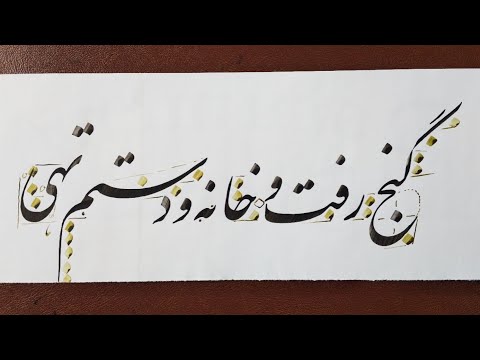 گنج رفت و خانه و دستم تهی